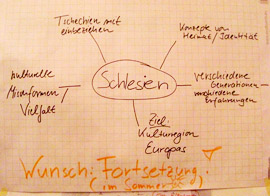 Tschechien mit
einbeziehen
Konzepte von
Heimat/Identität
Schlesien
kulturelle
Vielfalt
verschiedene
Generationen
verschiedene
Erfahrungen
Ziel:
Kulturregion
Europas
Wunsch: Fortsetzung
(im Sommer